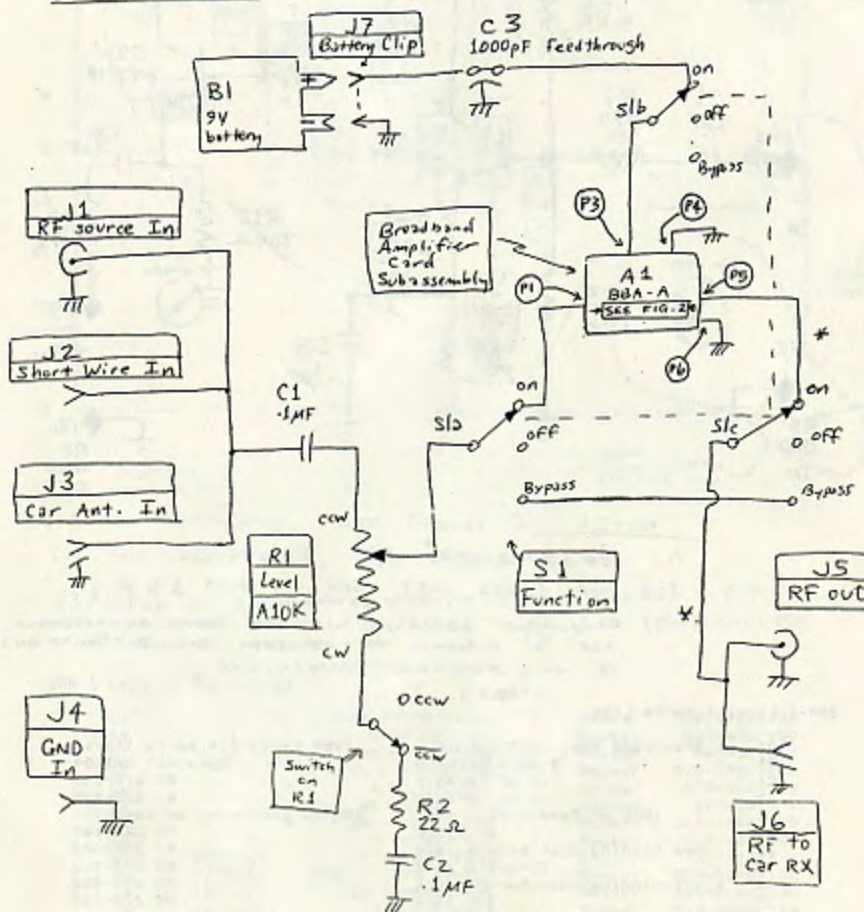 J7
Battery Clip
C3
1000pF feedthrough
B1
9V
battery
on
S1b
off
Bypass
J1
RF source In
P3
P4
Broadband
Amplifier
Card
Subassembly
P1
A1
BBA-A
SEE FIG. 2
P5
P6
*
J2
Short Wire In
C1
.1MF
on
S1a
off
on
S1c
off
J3
Car Ant. In
Bypass
Bypass
CCW
R1
Level
A10K
S1
Function
J5
RF out
*
CW
J4
GND
In
CCW
CCW
Switch
on
R1
R2
22Ω
C2
.1MF
J6
RF to
Car RX